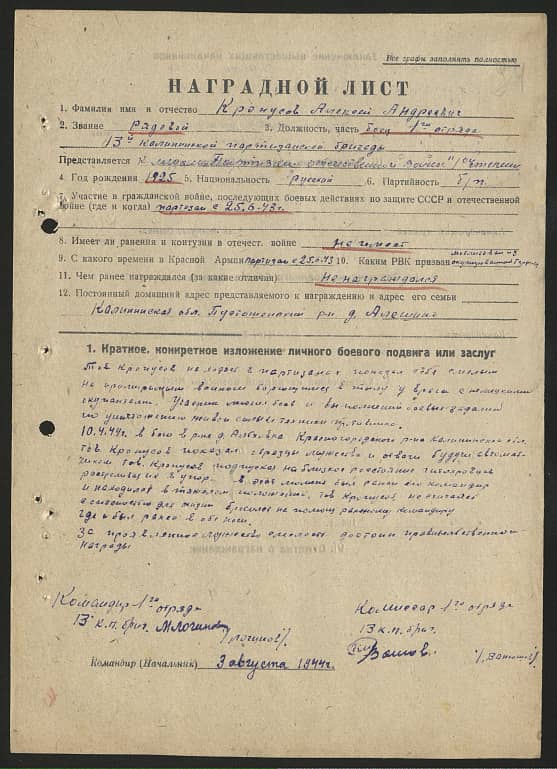 Все графы заполнять полностью
НАГРАДНОЙ ЛИСТ
1. Фамилия имя и отчество Кропусов Алексей Андреевич
2. Звание рядовой 3. Должность, часть боец 1го отряда
13й Калининской партизанской бригады
Представляется к медали Партизан отечественной войны" 1 степени
4. Год рождения 1925 5. Национальность русский 6. Партийность б/п.
7. Участие в гражданской войне, последующих боевых действиях по защите СССР и отечественной
войне (где и когда) партизан с 25.6.43 г.
8. Имеет ли ранения и контузии в отечест. войне не имеет
9. С какого времени в Красной Армии партизан с 25.6.43 10. Каким РВК призван
11. Чем ранее награждался (за какие отличия) Не награждался
12. Постоянный домашний адрес представляемого к награждению и адрес его семьи
Калининская обл. р-н д. Алешино
1. Краткое, конкретное изложение личного боевого подвига или заслуг
Тов Кропусов находясь в партизанах показал себя смелым
воином борющимся в тылу у врага с немецкими
оккупантами. Участник многих боев и выполнений боевых заданий
по уничтожению живой силы и техники противника.
10.4.44г. в бою в р-не д. Красногородского р-на Калининской обл.
тов Кропусов показал образцы мужества и отваги будучи автомат-
чиком тов. Кропусов подпуская на близкое расстояние гитлеровцев
расстреливал их в упор. в этот момент был ранен его командир
и находился в тяжелом положении, тов Кропусов не считаясь
с опасностью для жизни бросился на помощь раненому командиру
где и был ранен в обе ноги.
За проявленное мужество смелость достоин правительственной
награды
Командир 1го отряда
13 к.п. бриг. М Логинов
/Логинов/.
Комиссар 1го отряда
13 к.п. бриг.
Командир (Начальник) 3 августа 1944 г.